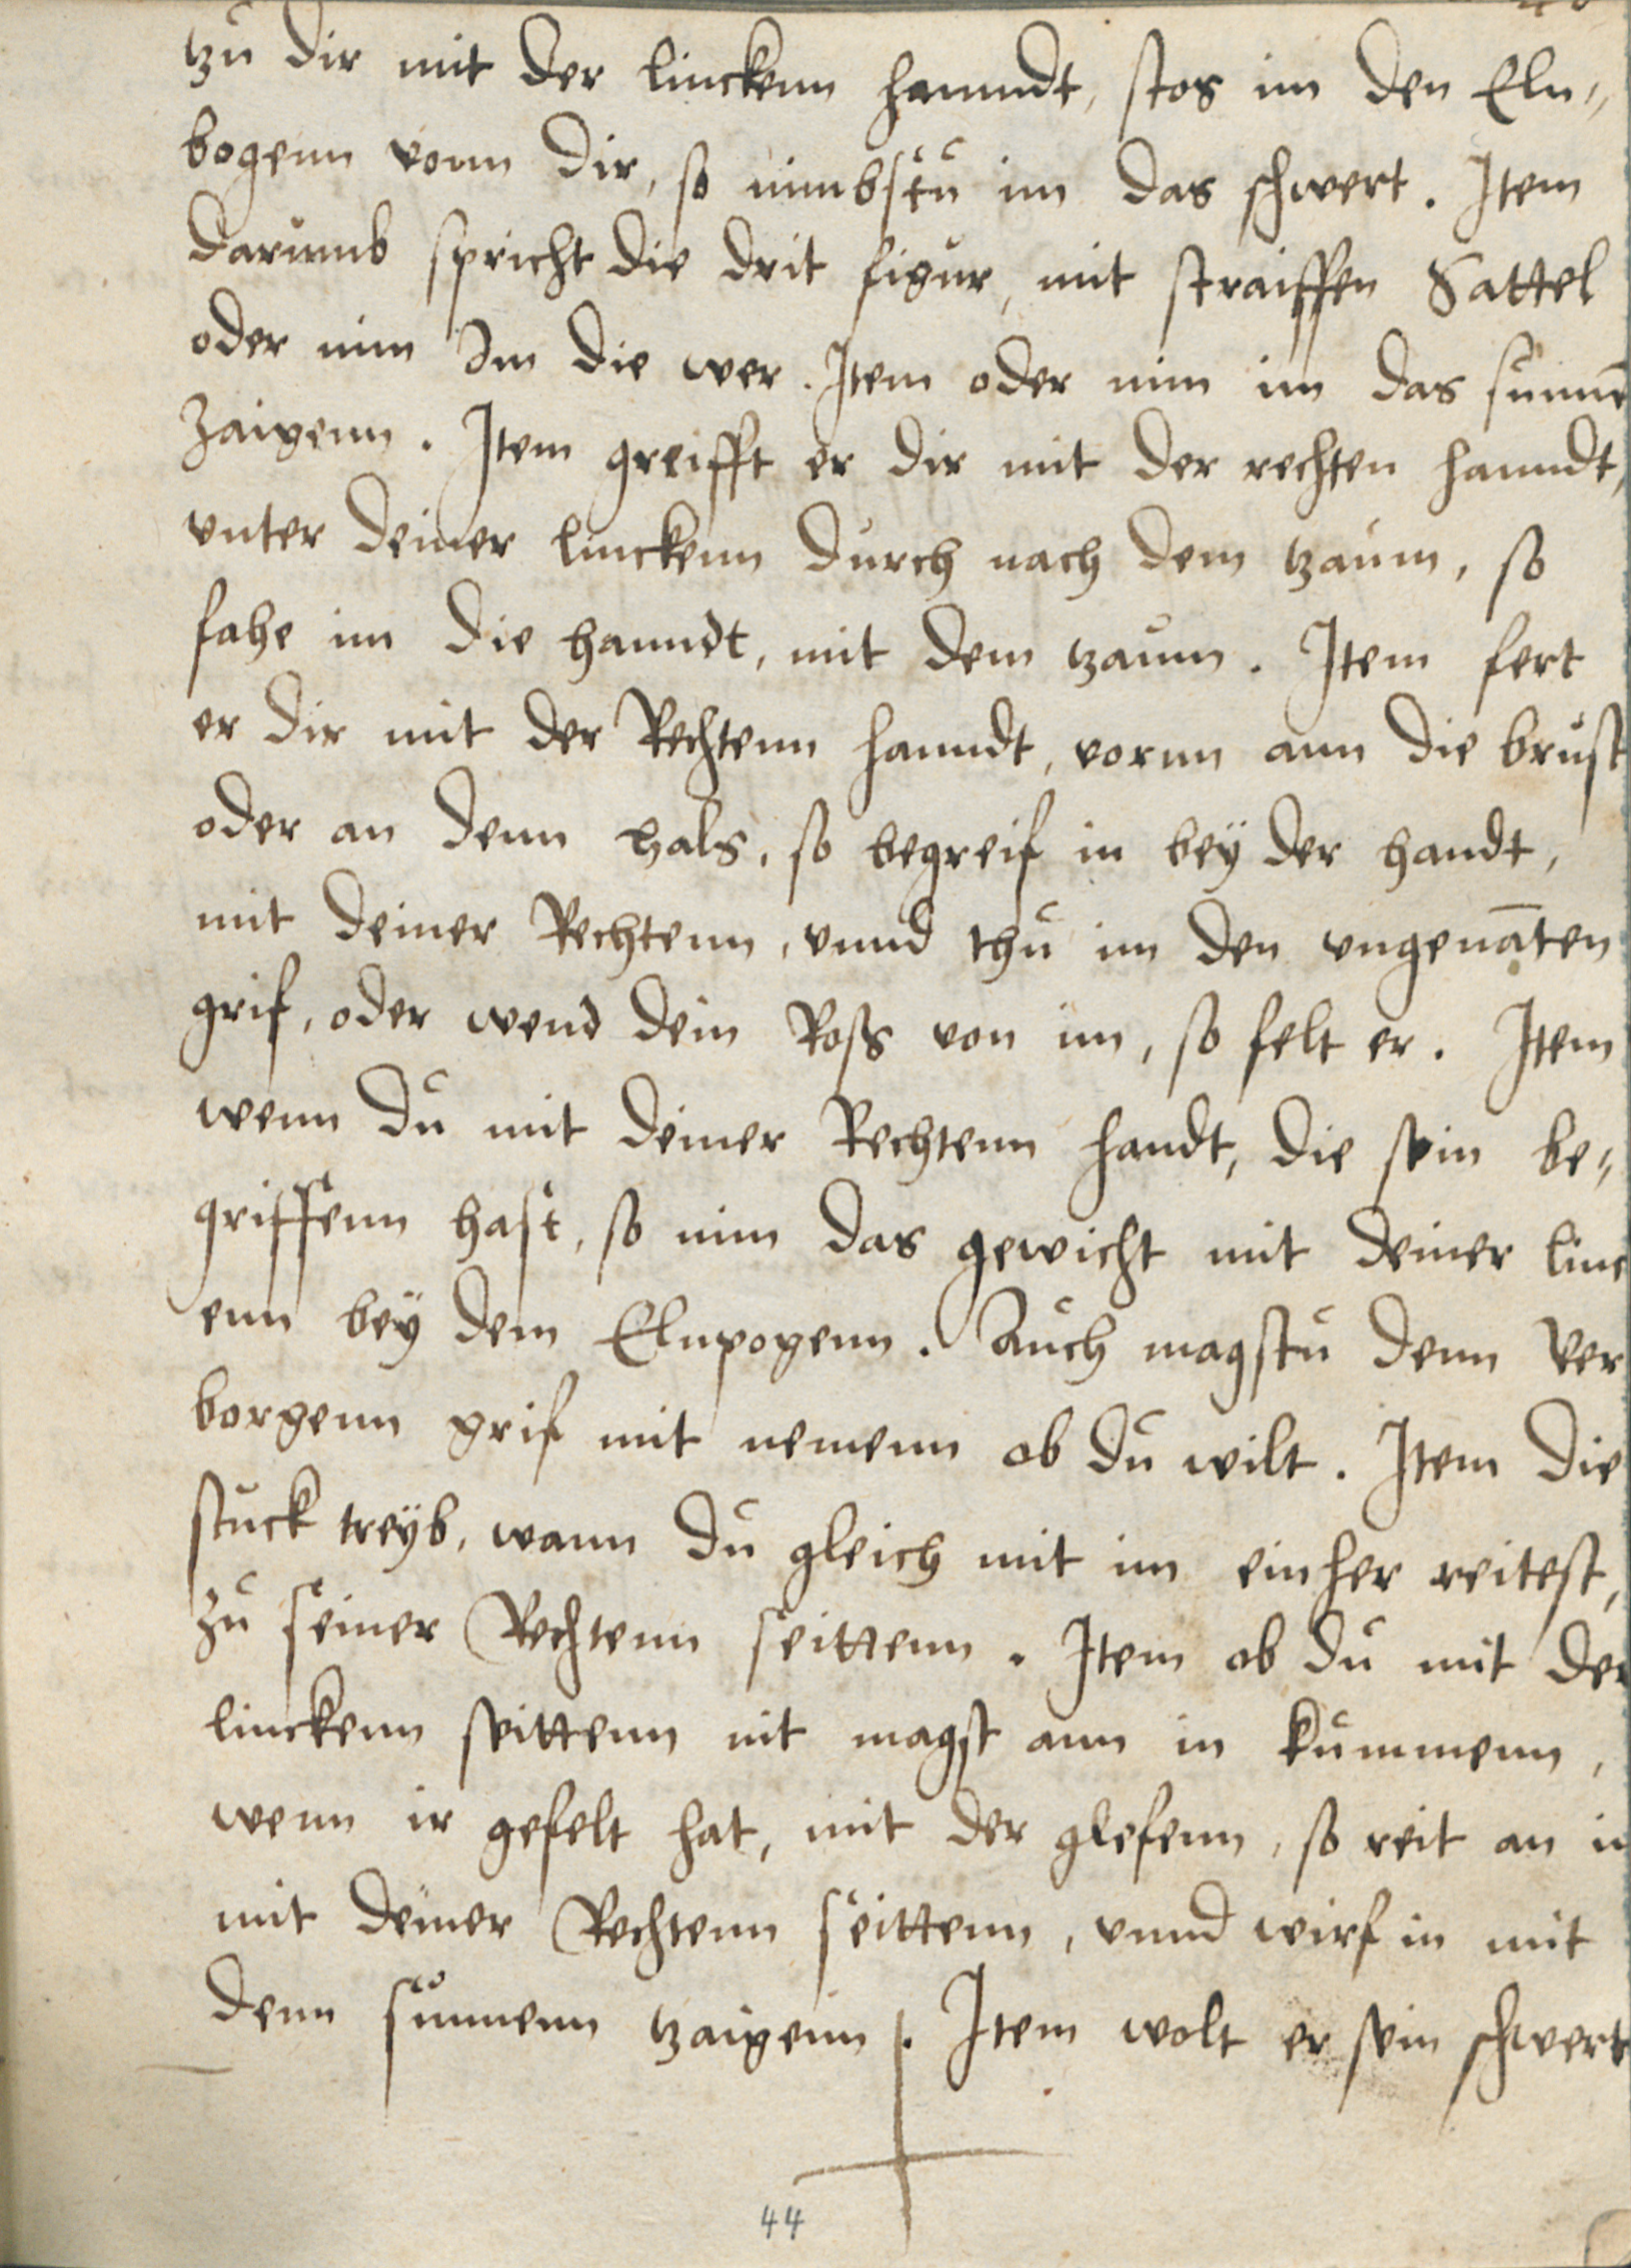 tzu dir mit der linckenn hanndt, stos im den Eln„
bogenn vonn dir, so nimbstu im das schwert. Item
darumb spricht die drit figur, mit straiffen Sattel
oder nim Im die wer. Item oder nim im das sunnē
Zaigenn. Item greifft er dir mit der rechten hanndt,
vnter deiner linckenn durch nach dem tzaum, so
fahe im die hanndt, mit dem tzaum. Item fert
er dir mit der Rechtenn hanndt, vornn ann die brust
oder an denn hals, so begreif in bey der handt,
mit deiner Rechtenn, vnnd thu im den vngenāten
grif, oder wend dein Ross von im, so felt er. Item
wenn du mit deiner Rechtenn handt, die sein be„
griffenn hast, so nim das gewicht mit deiner linc
enn beÿ dem Elnpogenn. Auch magstu denn Ver
borgenn grif mit nemenn ob du wilt. Item die
stuck treÿb, wann du gleich mit im ein her reitest,
zu seiner Rechtenn seittenn. Item ob du mit der
linckenn seittenn nit magst ann in kummenn,
wenn ir gefelt hat, mit der glefenn, so reit an in
mit deiner Rechtenn seittenn, vnnd wirf in mit
denn sunnenn tzaigenn. Item wolt er sein schwert
44